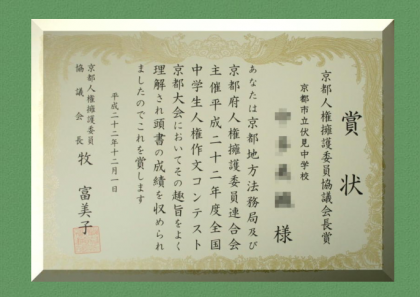 賞状
京都人権擁護委員協議会長賞
京都市立伏見中学校
様
あなたは京都地方法務局及び
京都府人権擁護委員連合会
主催平成二十二年度全国
中学生人権作文コンテスト
京都大会においてその趣旨をよく
理解され頭書の成績を収められ
ましたのでこれを賞します
平成二十二年十二月一日
京都人権擁護委員
協議会長 牧 富美子